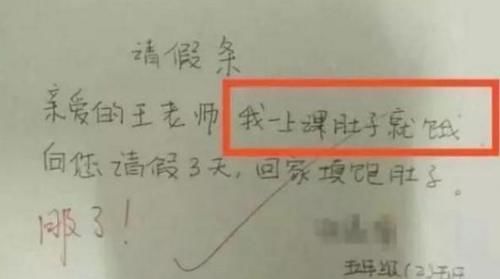 请假条
亲爱的王老师我一上课肚子就饿.
向您请假3天,回家填饱肚子。
服了!
五年级(2)班